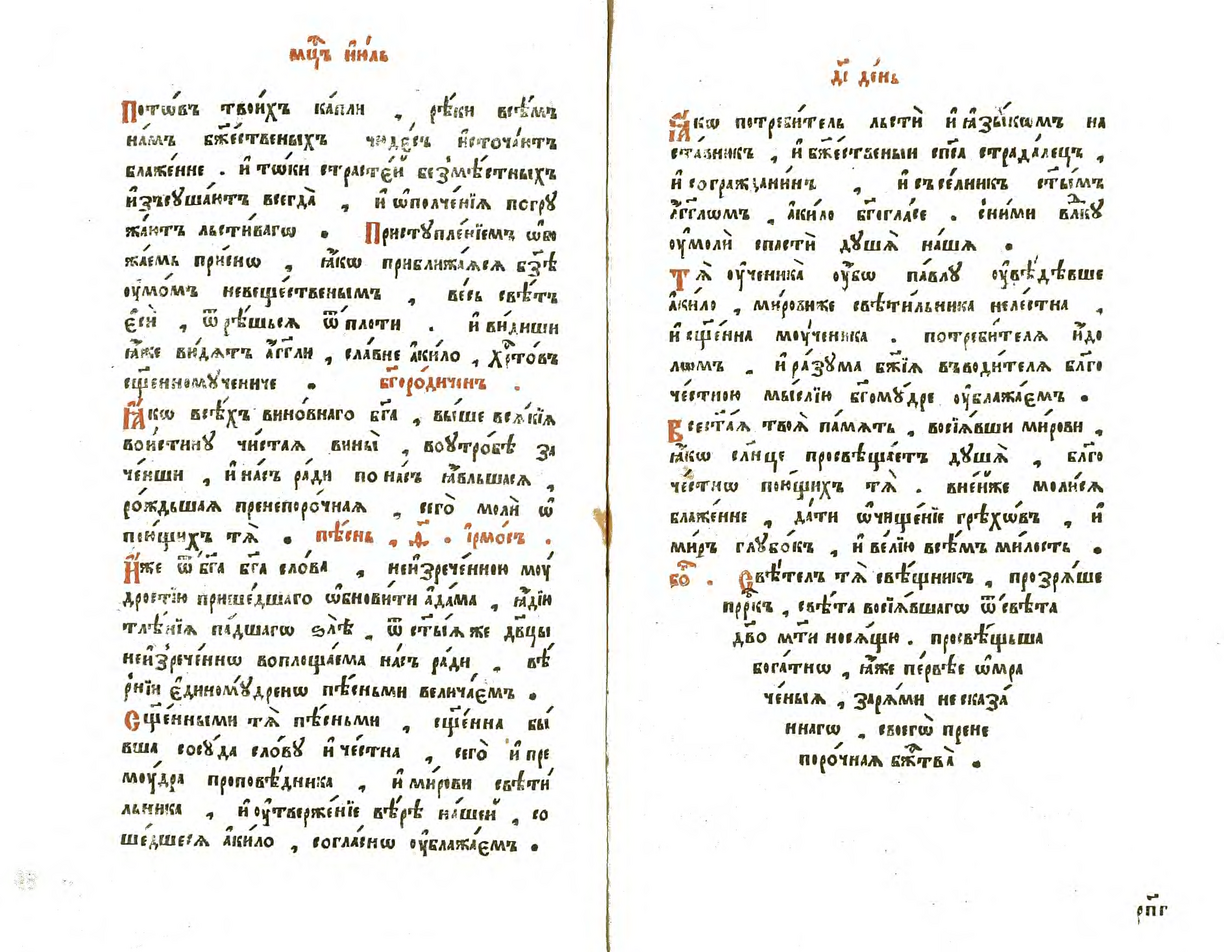 мцⷭ҇ъ і҆ю́ль
Пото́въ твои́хъ ка́пли , рѣ́ки всѣ́мъ
на́мъ бж҃е́ственыхъ чюде́съ и҆сточа́ютъ
блаже́нне . и҆ то́ки страсте́й безмѣ́стныхъ
и҆зъсꙋша́ютъ всегда̀ , и҆ ѡ҆полче́нїѧ погрꙋ
жа́ютъ льсти́вагѡ . Пристꙋпле́нїемъ ѡ҆бо
жа́емь при́снѡ , ꙗ҆́кѡ приближа́ѧсѧ бз҃ѣ
оу҆мо́мъ невеще́ственымъ , ве́сь свѣ́тъ
є҆сѝ , ѿрѣ́шьсѧ ѿ пло́ти . и҆ ви́диши
ꙗ҆́же ви́дѧтъ а҆́гг҃ли , сла́вне а҆ки́ло , хрⷭ҇то́въ
сщ҃енномꙋ́чениче . бг҃оро́диченъ .
Ꙗ҆́кѡ всѣ́хъ вино́внаго бг҃а , вы́ше всѧ́кїѧ
вои́стинꙋ чи́стаѧ вины̀ , воꙋтро́бѣ за
че́нши , и҆ на́съ ра́ди по на́съ ꙗ҆́вльшасѧ ,
ро́ждьшаѧ пренепоро́чнаѧ , сего̀ молѝ ѡ҆
пою́щихъ тѧ̀ . пѣ́снь , ѳ҃ . і҆рмо́съ .
И҆́же ѿ бг҃а бг҃а сло́ва , неи҆зрече́нною моꙋ́
дростїю прише́дшаго ѡ҆бнови́ти а҆да́ма , ꙗ҆́дїю
тлѣ́нїѧ па́дшагѡ ѕлѣ̀ , ѿ ст҃ы́ѧ же дв҃цы
неи҆зрече́ннѡ воплоща́ема на́съ ра́ди , вѣ́
рнїи є҆диномꙋ́дренѡ пѣ́сньми велича́емъ .
Сщ҃е́нными тѧ̀ пѣ́сньми , сщ҃е́нна бы́
вша сосꙋ́да сло́вꙋ и҆ че́стна , сего̀ и҆ пре
моꙋ́дра проповѣ́дника , и҆ ми́рови свѣти́
льника , и҆ оу҆твержє́нїе вѣ́рѣ на́шей , со
ше́дшесѧ а҆ки́ло , согла́снѡ оу҆блажа́емъ .
д҃і де́нь
Ꙗ҆́кѡ потреби́тель льстѝ и҆ ꙗ҆зы́кѡмъ на
ста́вникъ , и҆ бж҃е́ственыи сп҃са страда́лецъ ,
и҆ согражда́нинъ , и҆ съсе́лникъ ст҃ы́мъ
а҆́гг҃лѡмъ , а҆ки́ло бг҃огла́се . сни́ми влⷣкꙋ
оу҆молѝ спастѝ дꙋ́шѧ на́шѧ .
Тѧ̀ оу҆ченика̀ оу҆́бѡ па́влꙋ оу҆вѣ́дѣвше
а҆ки́ло , ми́рови же свѣти́льника неле́стна ,
и҆ сщ҃е́нна моꙋ́ченика . потреби́телѧ и҆́до
лѡмъ . и҆ ра́зꙋма бж҃їѧ въводи́телѧ бл҃го
че́стною мы́слїю бг҃омꙋ́дре оу҆блажа́емъ .
Всест҃а́ѧ твоѧ̀ па́мѧть , восїѧ́вши ми́рови ,
ꙗ҆́кѡ сл҃нце просвѣща́етъ дꙋ́шѧ , бл҃го
че́стнѡ пою́щихъ тѧ̀ . вне́йже моли́сѧ
блаже́нне , да́ти ѡ҆чище́нїе грѣхѡ́въ , и҆
ми́ръ глꙋбо́къ , и҆ ве́лїю всѣ́мъ ми́лость .
боⷢ҇ . Свѣ́телъ тѧ̀ свѣ́щникъ , прозрѧ́ше
прⷪ҇ркъ , свѣ́та восїѧ́вшагѡ ѿ свѣ́та
дв҃о мт҃и носѧ́щю . просвѣщьша
бога́тнѡ , ꙗ҆́же пе́рвѣе ѡ҆мра
че́ныѧ , зарѧ́ми несказа́
ннагѡ , своегѡ̀ прене
поро́чнаѧ бжⷭ҇тва̀ .
рп҃г